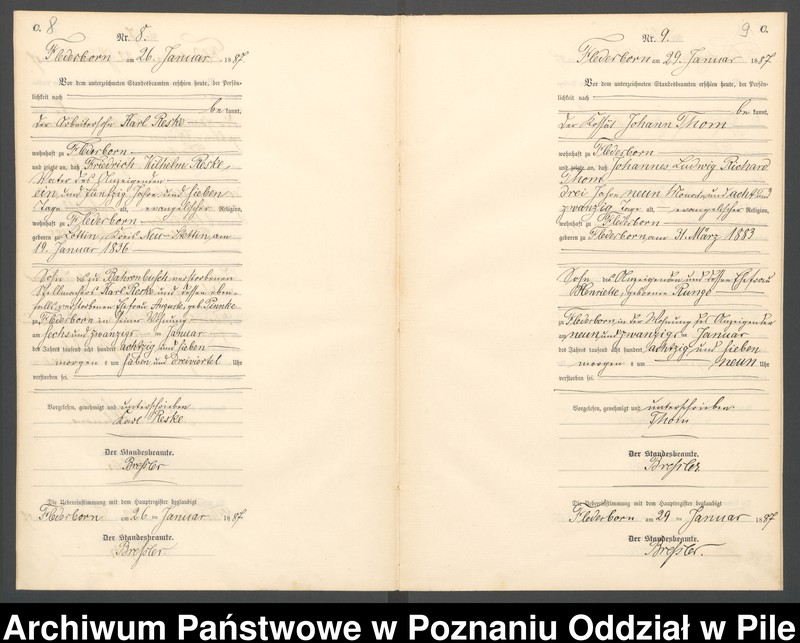 C. 8
Nr. 8.
Flederborn am 26. Januar 1887
Vor dem unterzeichneten Standesbeamten erschien heute, der Persön-
lichkeit nach
be kannt,
der Arbeitersohn Karl Reske
wohnhaft zu Flederborn
und zeigte an, daß Friedrich Wilhelm Reske,
Vater des Anzeigenden
ein und fünfzig Jahre und sieben
Tage alt, evangelischer Religion,
wohnhaft zu Flederborn
geboren zu Lottin, Kreis Neu-Stettin, am
19. Januar 1836
Sohn des zu Bahrenbusch verstorbenen
Stellmachers Karl Reske und dessen eben-
falls verstorbenen Ehefrau geb.
zu Flederborn in seiner Wohnung
am sechs und zwanzigsten Januar
des Jahres tausend acht hundert achtzig und sieben
morgens um sieben und dreiviertel Uhr
verstorben sei.
Vorgelesen, genehmigt und unterschrieben
Karl Reske
Der Standesbeamte.
Breßler
Die Uebereinstimmung mit dem Hauptregister beglaubigt
Flederborn am 26 ten Januar 1887
Der Standesbeamte.
Breßler
9 C.
Nr. 9.
Flederborn am 29. Januar 1887
Vor dem unterzeichneten Standesbeamten erschien heute, der Persön-
lichkeit nach
be kannt,
der Kossät Johann Thom
wohnhaft zu Flederborn
und zeigte an, daß Johannes Ludwig Richard
Thom
drei Jahre neun Monate und acht und
zwanzig Tage alt, evangelischer Religion,
wohnhaft zu Flederborn
geboren zu Flederborn am 31. März 1883
Sohn des Anzeigenden und dessen Ehefrau
Henriette, geborene Runge
zu Flederborn in der Wohnung des Anzeigenden
am neun und zwanzigsten Januar
des Jahres tausend acht hundert achtzig und sieben
morgens um neun Uhr
verstorben sei.
Vorgelesen, genehmigt und unterschrieben
Thom
Der Standesbeamte.
Breßler.
Die Uebereinstimmung mit dem Hauptregister beglaubigt
Flederborn am 29 ten Januar 1887
Der Standesbeamte.
Breßler.
Archiwum Państwowe w Poznaniu Oddział w Pile